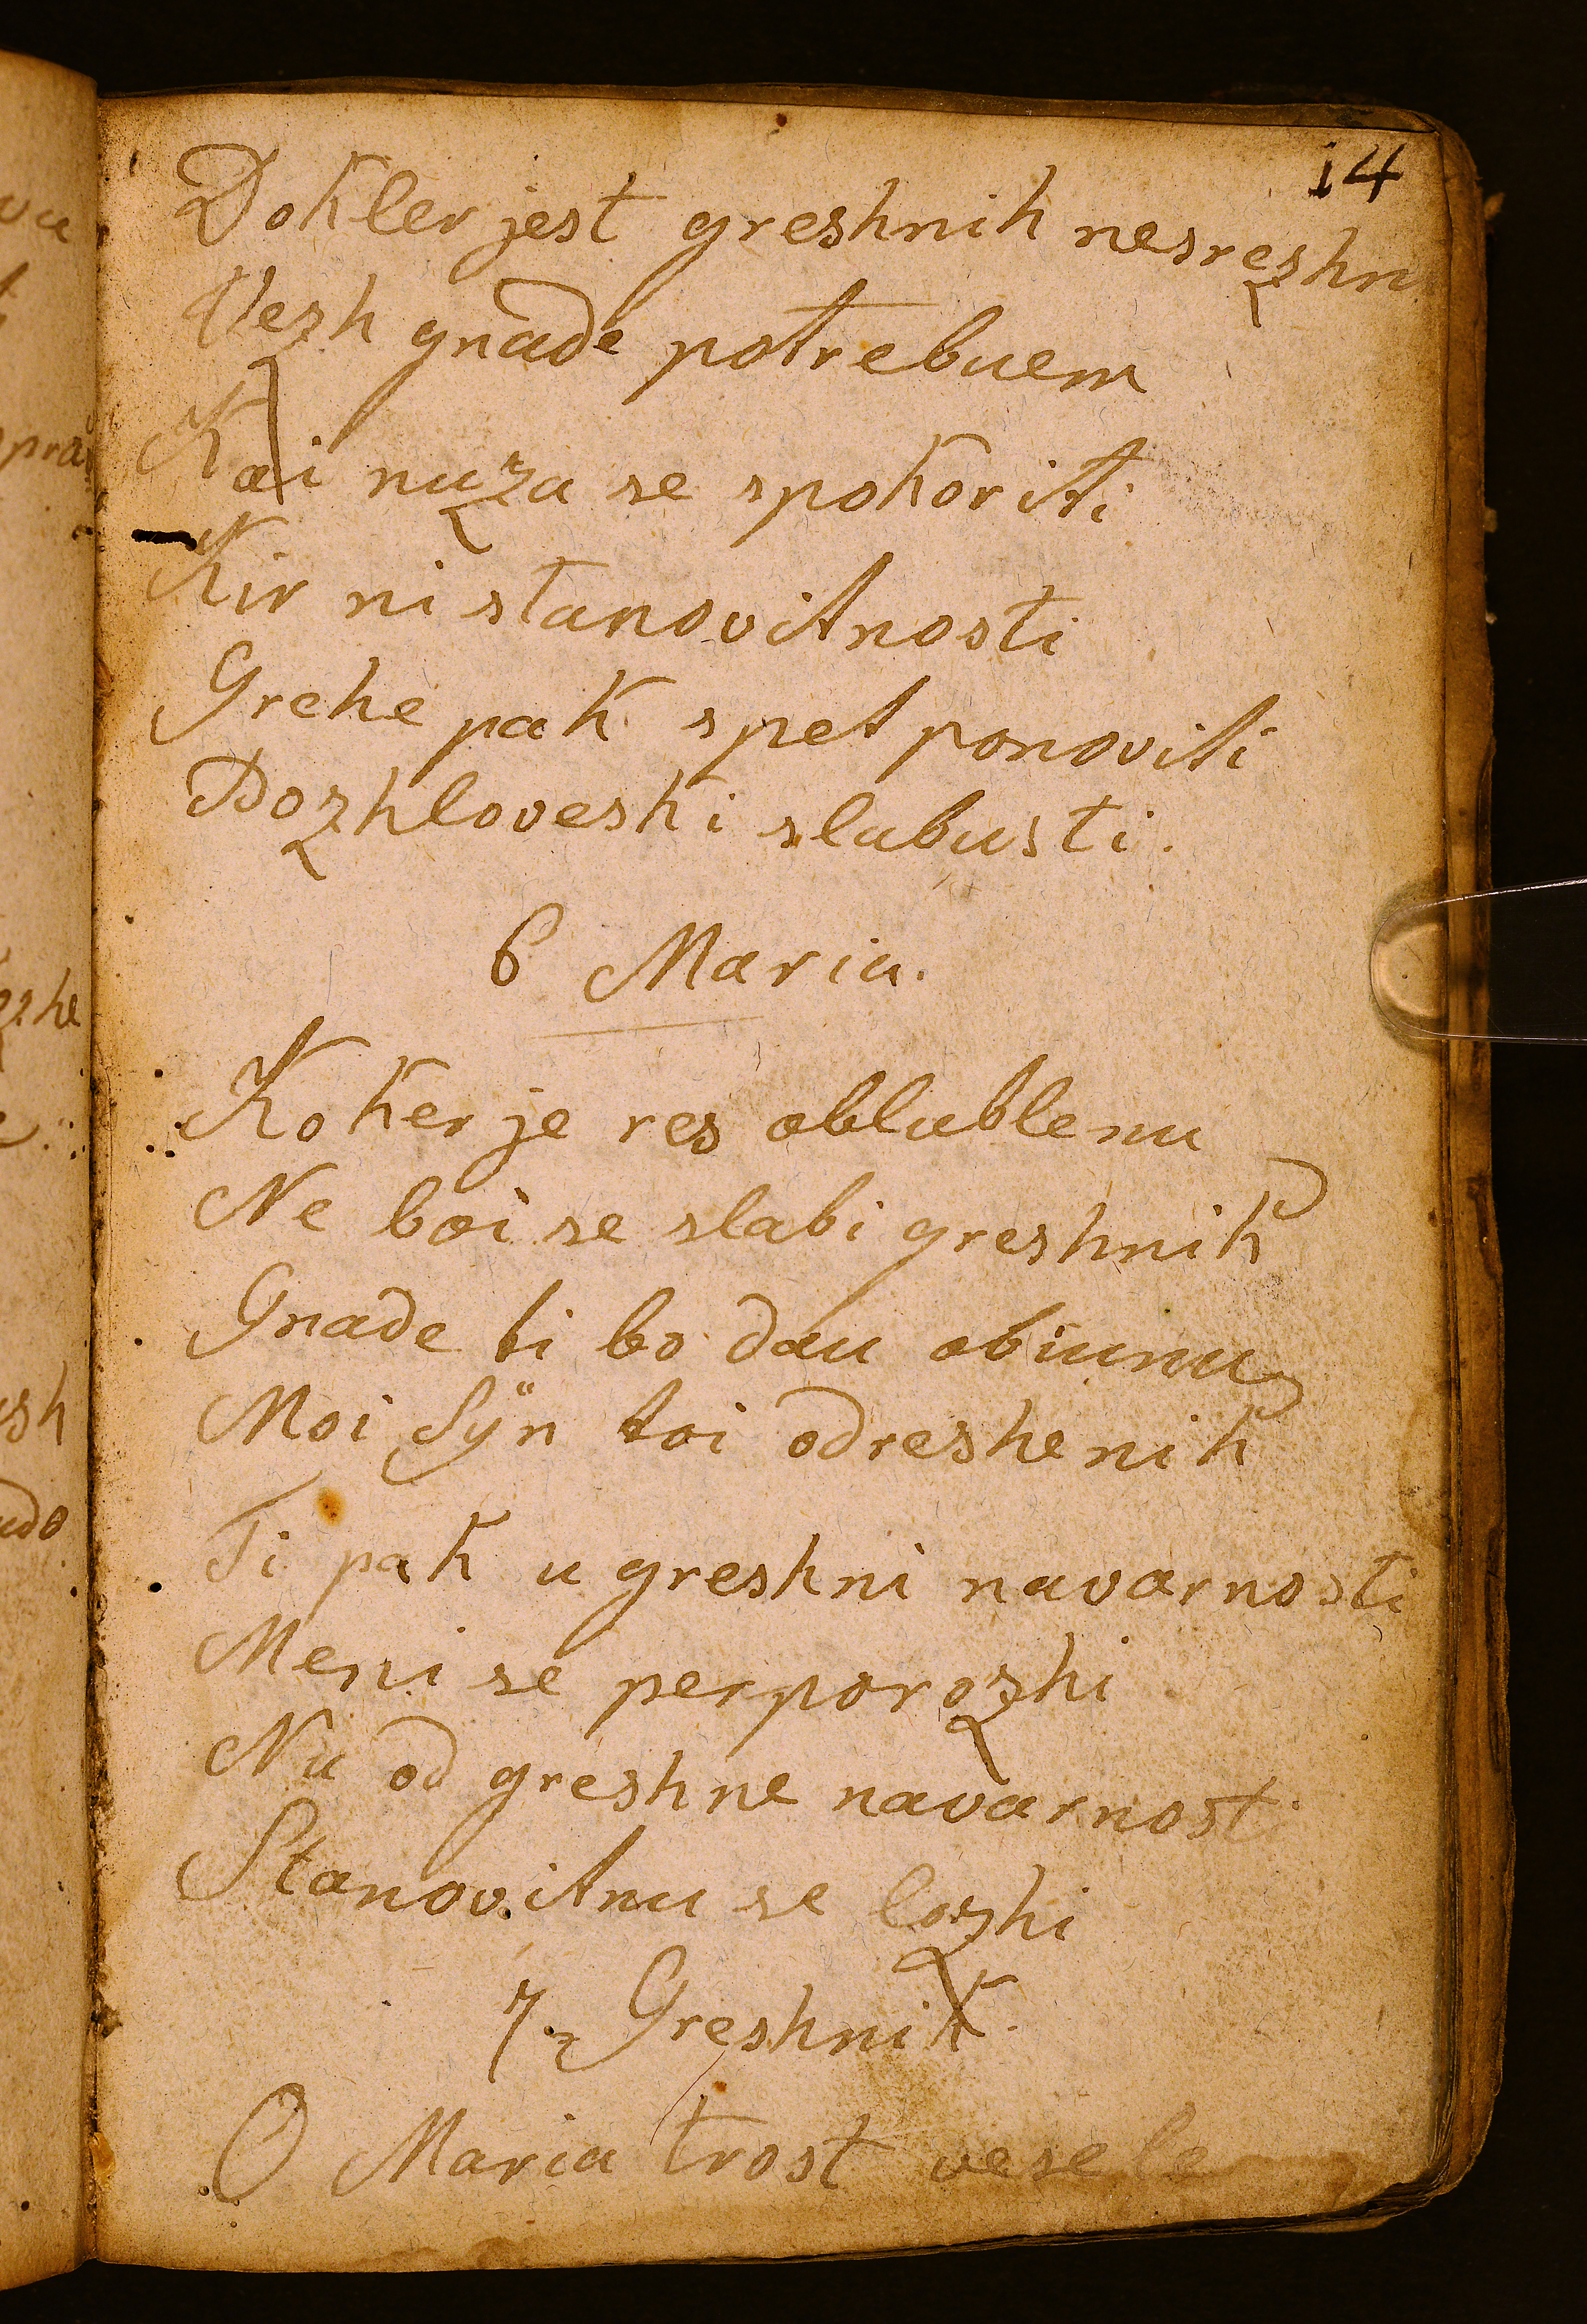 14
Dokler jest greshnik nesrezhn
Vezh gnade potrebuem
Kai nuza se spokoriti
Kir ni stanovitnosti
Grehe pak spet ponoviti
Pozhloveshki slabusti.
6 Maria.
Koker je res oblublenu
Ne boi se slabi greshnik
Gnade ti bo dau obiunu
Moi Sÿn toi odreshenik
Ti pak u greshni navarnosti
Meni se perporozhi
Nu od greshne navarnosti
Stanovitnu se lozhi
7. Greshnik.
O Maria trost vesele